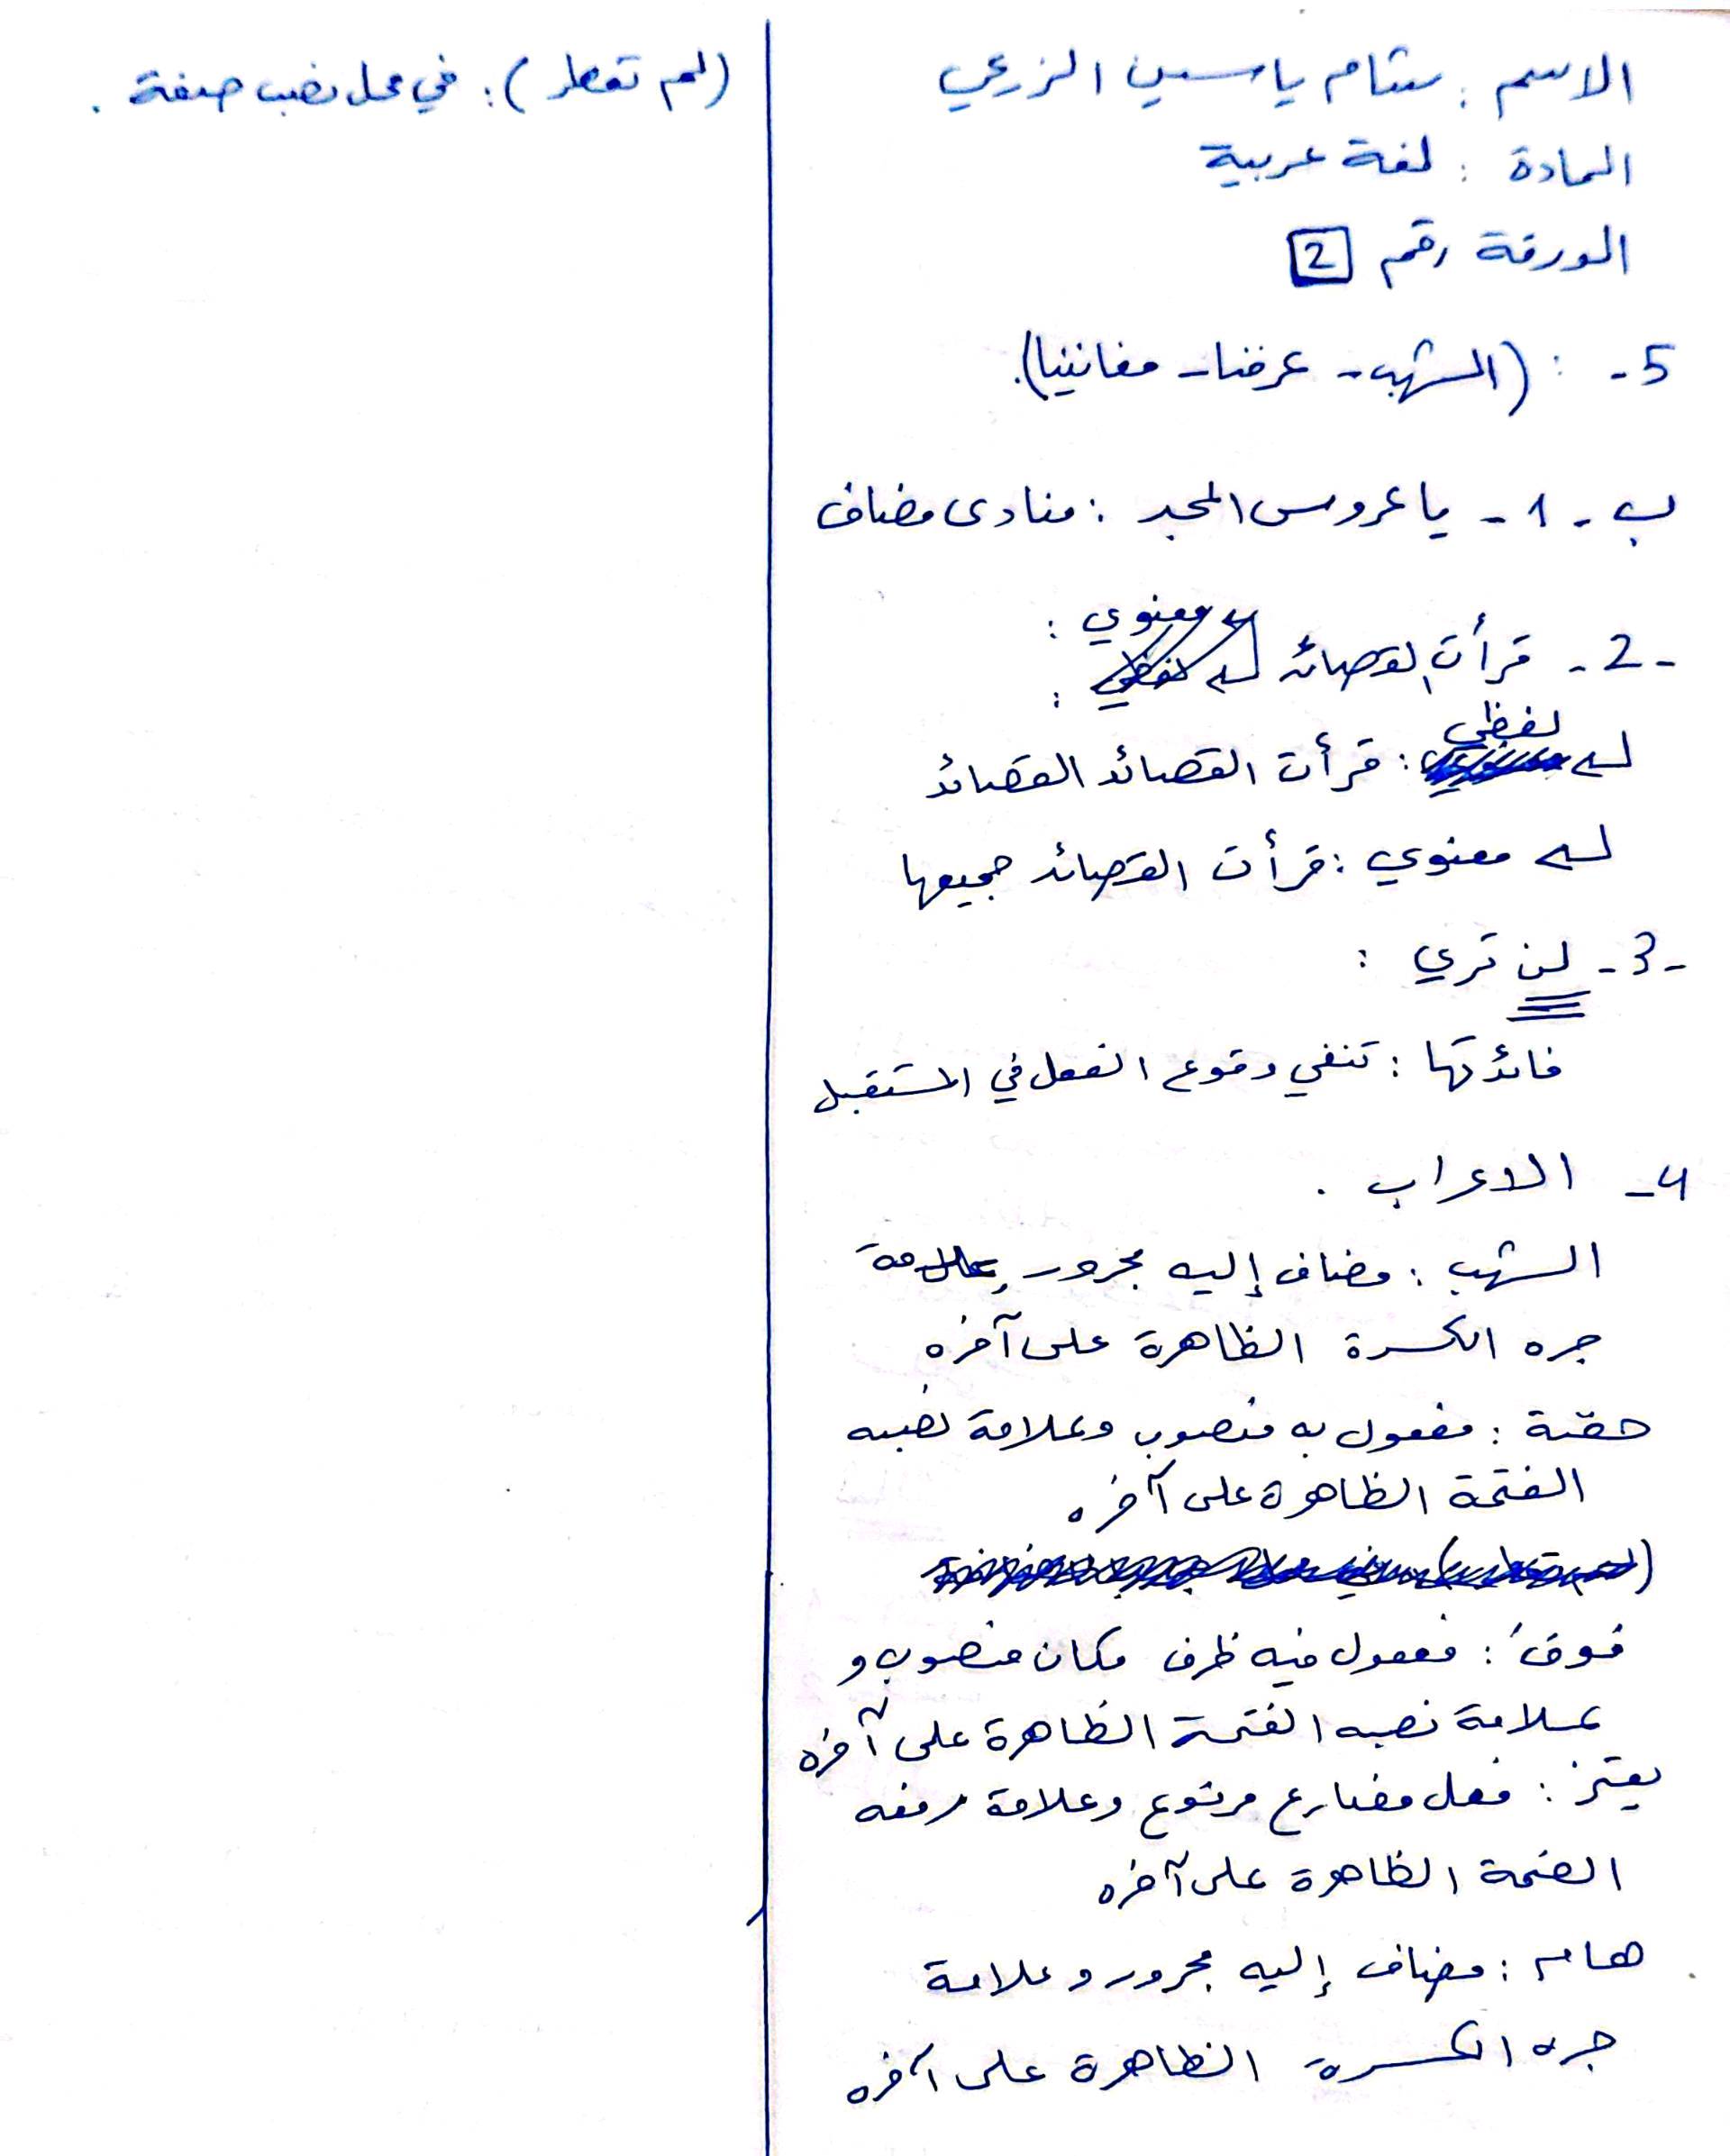 الاسم : بتام ياسين الزعبي
المادة : لغة عربية
الورقة رقم 2
5 - : (الشهب - عرفنا - مغانينا).
ب - 1 - يا عروس المجد : منادى مضاف
- 2 - قرأت القصائد معنوي :
لفظي : قرأت القصائد القصائد
معنوي : قرأت القصائد جميعها
- 3 - لن تري :
فائدتها : تنفي وقوع الفعل في المستقبل
4 - الاعراب .
الشهب : مضاف إليه مجرور وعلامة
جره الكسرة الظاهرة على آخره
حقبة : مفعول به منصوب وعلامة نصبه
الفتحة الظاهرة على آخره
فوقَ : مفعول فيه ظرف مكان منصوب و
علامة نصبه الفتحة الظاهرة على آخره
يعتز : فعل مضارع مرفوع وعلامة رفعه
الضمة الظاهرة على آخره
هام : مضاف إليه مجرور وعلامة
جره الكسرة الظاهرة على آخره
(لم تطر) : في محل نصب صفة .